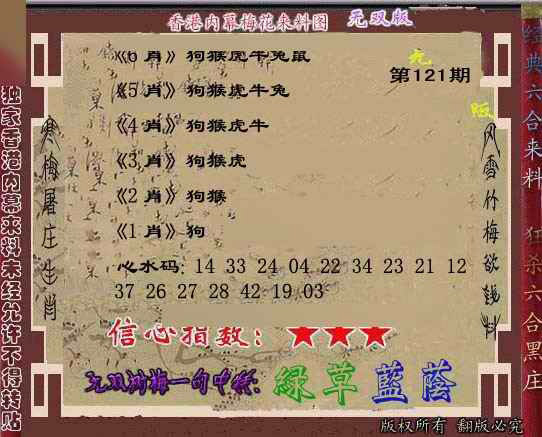 香港内幕梅花来料图 无双版
《6 肖》狗猴虎牛兔鼠
无
第121期
《5 肖》狗猴虎牛兔
版
《4 肖》狗猴虎牛
《3 肖》狗猴虎
《2 肖》狗猴
《1 肖》狗
心水码: 14 33 24 04 22 34 23 21 12
37 26 27 28 42 19 03
信心指数: ★★★
无双
梅一句中特:
綠草藍蔭
版权所有 翻版必究
独家香港内幕来料未经允许不得转贴
寒梅屠庄生肖
风雪竹梅欲
料
经典六合来料
狂杀六合黑庄